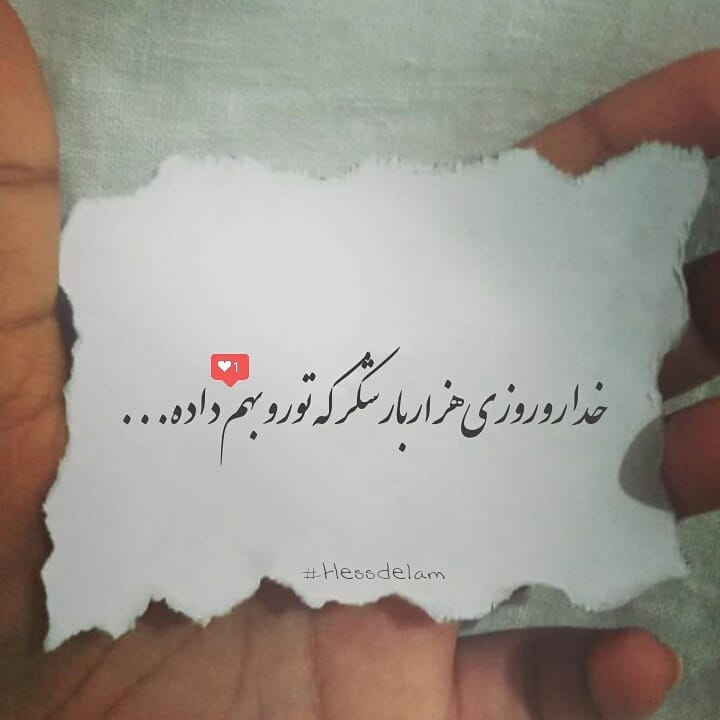 1
خدا رو روزی هزار بار شکر که تو رو بهم داده...
#Hessdelam